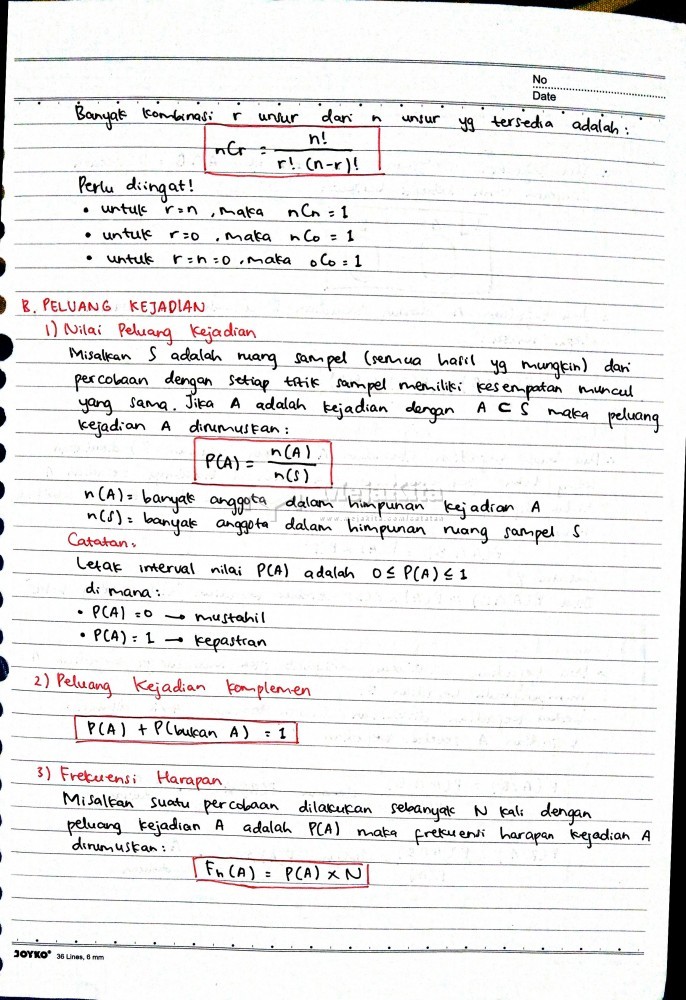 No
Date
Banyak kombinasi r unsur dari n unsur yg tersedia adalah :
nCr = n! / r! (n-r)!
Perlu diingat!
• untuk r=n , maka nCn = 1
• untuk r=0 , maka nC0 = 1
• untuk r=n=0 , maka 0C0 = 1
B. PELUANG KEJADIAN
1) Nilai Peluang Kejadian
Misalkan S adalah ruang sampel (semua hasil yg mungkin) dari
percobaan dengan setiap titik sampel memiliki kesempatan muncul
yang sama. Jika A adalah kejadian dengan A ⊂ S maka peluang
kejadian A dirumuskan :
P(A) = n(A) / n(S)
n(A) = banyak anggota dalam himpunan kejadian A
MejaKita
n(S) = banyak anggota dalam himpunan ruang sampel S
Catatan :
Letak interval nilai P(A) adalah 0 ≤ P(A) ≤ 1
di mana :
• P(A) = 0 → mustahil
• P(A) = 1 → kepastian
2) Peluang Kejadian Komplemen
P(A) + P(bukan A) = 1
3) Frekuensi Harapan
Misalkan suatu percobaan dilakukan sebanyak N kali dengan
peluang kejadian A adalah P(A) maka frekuensi harapan kejadian A
dirumuskan :
Fh(A) = P(A) × N
JOYKO® 36 Lines, 6 mm